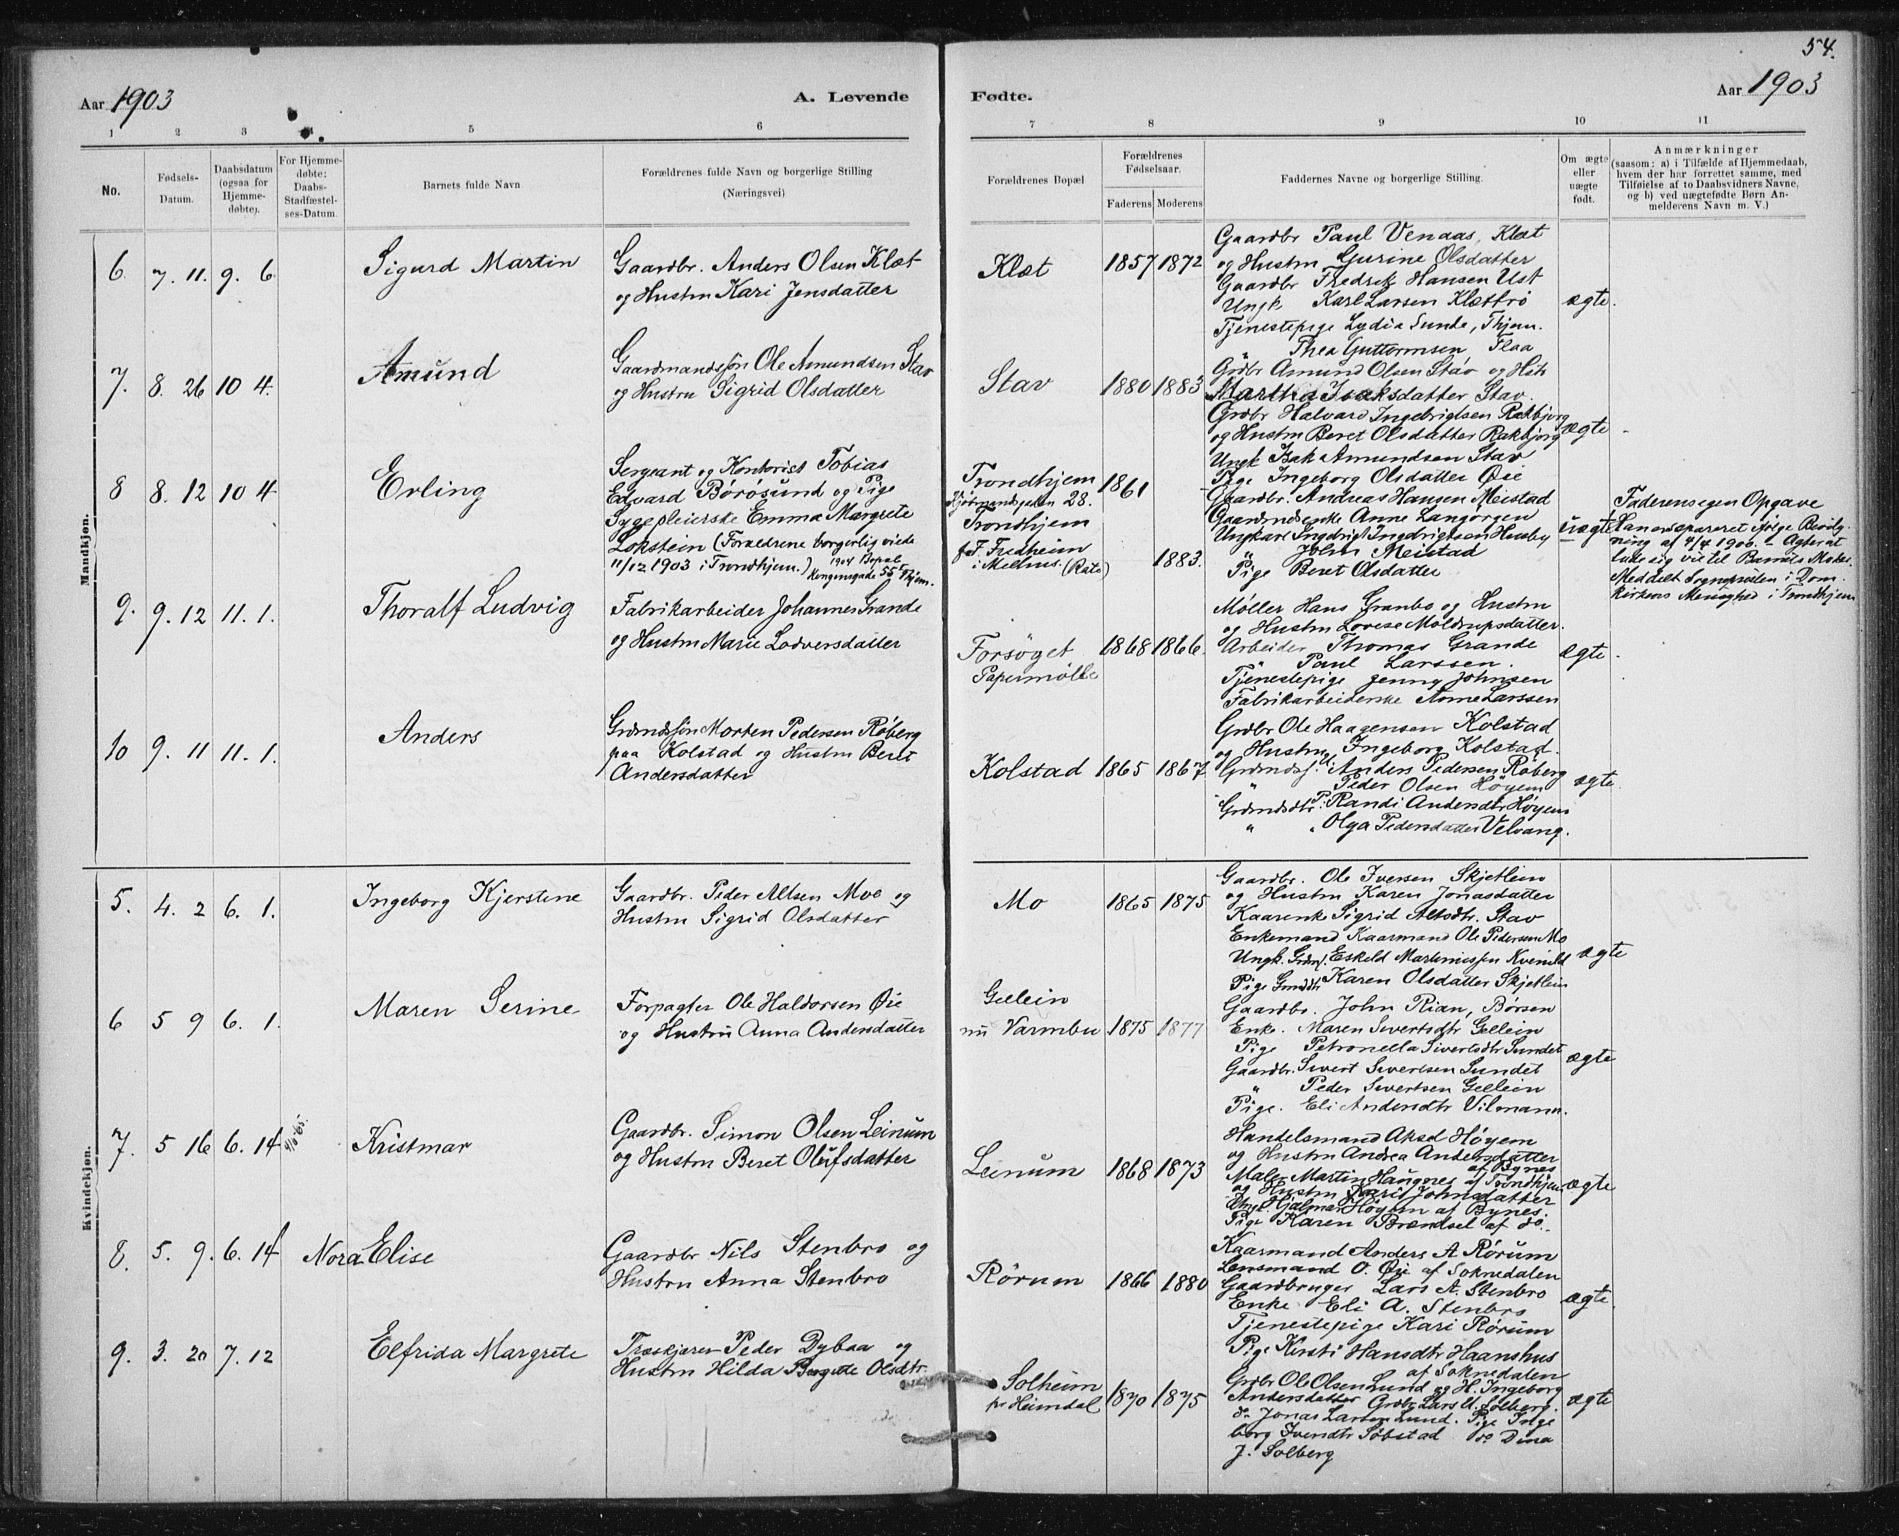 54.
Aar 1903
A. Levende
Fødte.
Aar 1903
1 2 3 4 5 6 7 8 9 10 11
No.
Fødsels-
Datum.
Daabsdatum
(ogsaa for
Hjemme-
døbte).
For Hjemme-
døbte:
Daabs-
Stadfæstel-
ses-Datum.
Barnets fulde Navn
Forældrenes fulde Navn og borgerlige Stilling
(Næringsvei)
Forældrenes Bopæl
Forældrenes
Fødselsaar.
Faderens Moderens
Faddernes Navne og borgerlige Stilling.
Om ægte
eller
uægte
født.
Anmærkninger
(saasom: a) i Tilfælde af Hjemmedaab,
hvem der har forrettet samme, med
Tilføielse af to Daabsvidners Navne,
og b) ved uægtefødte Børn An-
melderens Navn m. V.)
Mandkjøn.
6 7. 11. 9. 6
Sigurd Martin
Gaardbr. Anders Olsen Klæt
og Hustru Kari Jensdatter
Klæt
1857 1872
Gaardbr Paul Venaas, Klæt
og Hustru Gurine Olsdatter
Gaardbr Fredrik Hansen Ust
Ungk Karl Larsen Klættrø
Tjenestepige Lydia Sunde, Thjem.
" Thea Guttormsen Flaa
ægte.
7. 8. 26 10 4.
Amund
Gaardmandssøn Ole Amundsen Stav
og Hustru Sigrid Olsdatter
Stav
1880 1883
Grdbr Amund Olsen Stav og Hstr
Martha Isaksdatter Stav.
Grdbr Halvard Ingebrigtsen Rakbjørg
og Hustru Beret Olsdatter Rakbjørg
Ungk Isak Amundsen Stav
Pige Ingeborg Olsdatter Øie
ægte
8 8. 12 10 4
Erling
Sergeant og Kontorist Tobias
Edvard Børøsund og Pige
Sygepleierske Emma Margrete
Lokstein (Forældrene borgerlig viede
11/12 1903 i Trondhjem.) 1904 Bopæl
Kongensgade 55 Thjem.
Trondhjem
28.
Trondhjem
f. Fredheim
i Melhus. (Rate)
1861
1883.
Gaardbr. Andreas Hansen Meistad
Gaardmdsenke Anne Langørgen
Ungkarl Ingebrigt Ingebrigtsen Huseby
" John Meistad
" Pige Beret Olsdatter
uægte
Faderens egen Opgave
af 4/4 1900. - Agter at
lade sig vie til Barnets Moder.
Meddelt Sognepresten i Dom-
kirkens Menighed i Trondhjem
9. 9. 12 11. 1.
Thoralf Ludvig
Fabrikarbeider Johannes Grande
og Hustru Marie Lodversdatter
Forsøget
Papirmølle
1868 1866.
Møller Hans Granbo og Hustru
og Hustru Lovise Moldrupsdatter.
Arbeider Thomas Grande
" Paul Larssen.
Tjenestepige Jenny Johnsen
Fabrikarbeiderske Anne Larssen
ægte.
10 9. 11 11. 1.
Anders
Grdmdssøn Morten Pedersen Røberg
paa Kolstad og Hustru Beret
Andersdatter
Kolstad
1865 1867
Grdbr Ole Haagensen Kolstad
og Hustru Ingeborg Kolstad.
Grdmdss. Anders Pedersen Røberg
" Peder Olsen Høyem
Grdmdsdtr. P. Randi Andersdtr Høyem
" " Olga Pedersdatter Velvang.
ægte
Kvindekjøn.
5. 4. 2 6. 1.
Ingeborg Kjerstine
Gaardbr. Peder Altsen Moe og
Hustru Sigrid Olsdatter
Mo
1865 1875
Gaardbr. Ole Iversen Skjetlein
og Hustru Karen Jonasdatter
Kaarenke Sigrid Altsdtr. Stav
Enkemand Kaarmand Ole Pedersen Mo
Ungk. Grdm. Eskeld Martinussen Kvenild
Pige Grmdsdtr Karen Olsdatter Skjetlein
ægte
6 5 9 6. 1.
Maren Serine
Forpagter Ole Haldorsen Øie
og Hustru Anna Andersdatter
Gellein
nu Varmbu
1875 1877
Gaardbr. John Rian, Børsen
Enke. Maren Sivertsdtr Gellein
Pige Petronella Sivertsdtr Sundet
Gaardbr. Sivert Sivertsen Sundet
" Peder Sivertsen Gellein
Pige. Eli Andersdtr Vilmann.
ægte
7. 5 16 6. 14
Kristmar
Gaardbr. Simon Olsen Leinum
og Hustru Beret Olufsdatter
Leinum
1868 1873
Handelsmand Aksel Høyem
og Hustru Andrea Andersdatter
af Bynes
Maler Martin Haugnes af Trondhjem
og Hustru Kari Johnsdatter
Ungk. Hjalmar Høyem af Bynes.
Pige Karen Brendsel af do.
ægte
8. 5. 9. 6. 14
Nora Elise
Gaardbr Nils Stenbro og
Hustru Anna Stenbro
Rørum
1866 1880
Kaarmand Anders A Rørum
Lensmand O. Øie af Soknedalen
Gaardbruger Lars A. Stenbro
Enke Eli A. Stenbro
Tjenestepige Kari Rørum
Pige Kirsti Hansdtr Haanshus
af Soknedalen
ægte.
9. 3. 20 7. 12
Elfrida Margrete
Træskjærer Peder Dybaa og
Hustru Hilda Bergitte Olsdtr.
Solheim
pr Heimdal
1870 1875
Grdbr Ole Olsen Lund og H. Ingeborg
Andersdatter Grdbr Lars U. Solberg.
do Jonas Larsen Lund. Pige Inge
borg Ivendtr Søbstad do Dina
J. Solberg
ægte